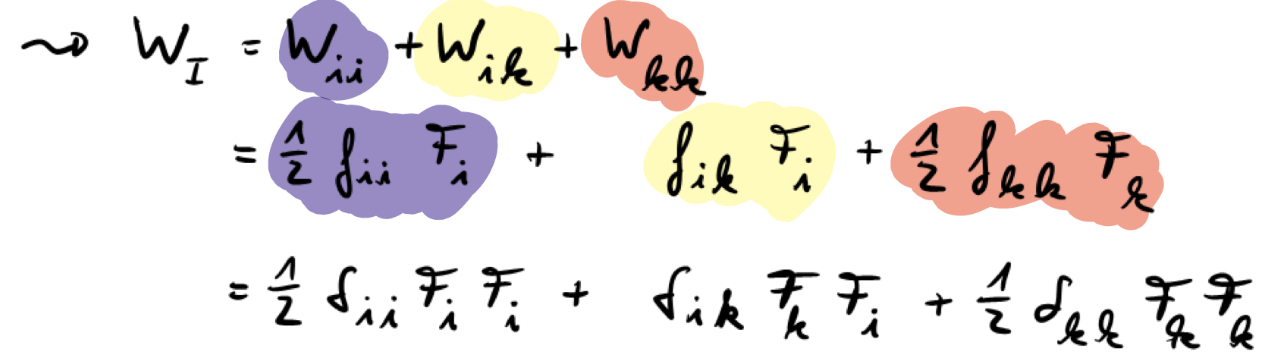 ⇝ W_I = W_ii + W_ik + W_kk
= 1/2 f_ii F_i + f_ik F_i + 1/2 f_kk F_k
= 1/2 δ_ii F_i F_i + δ_ik F_k F_i + 1/2 δ_kk F_k F_k